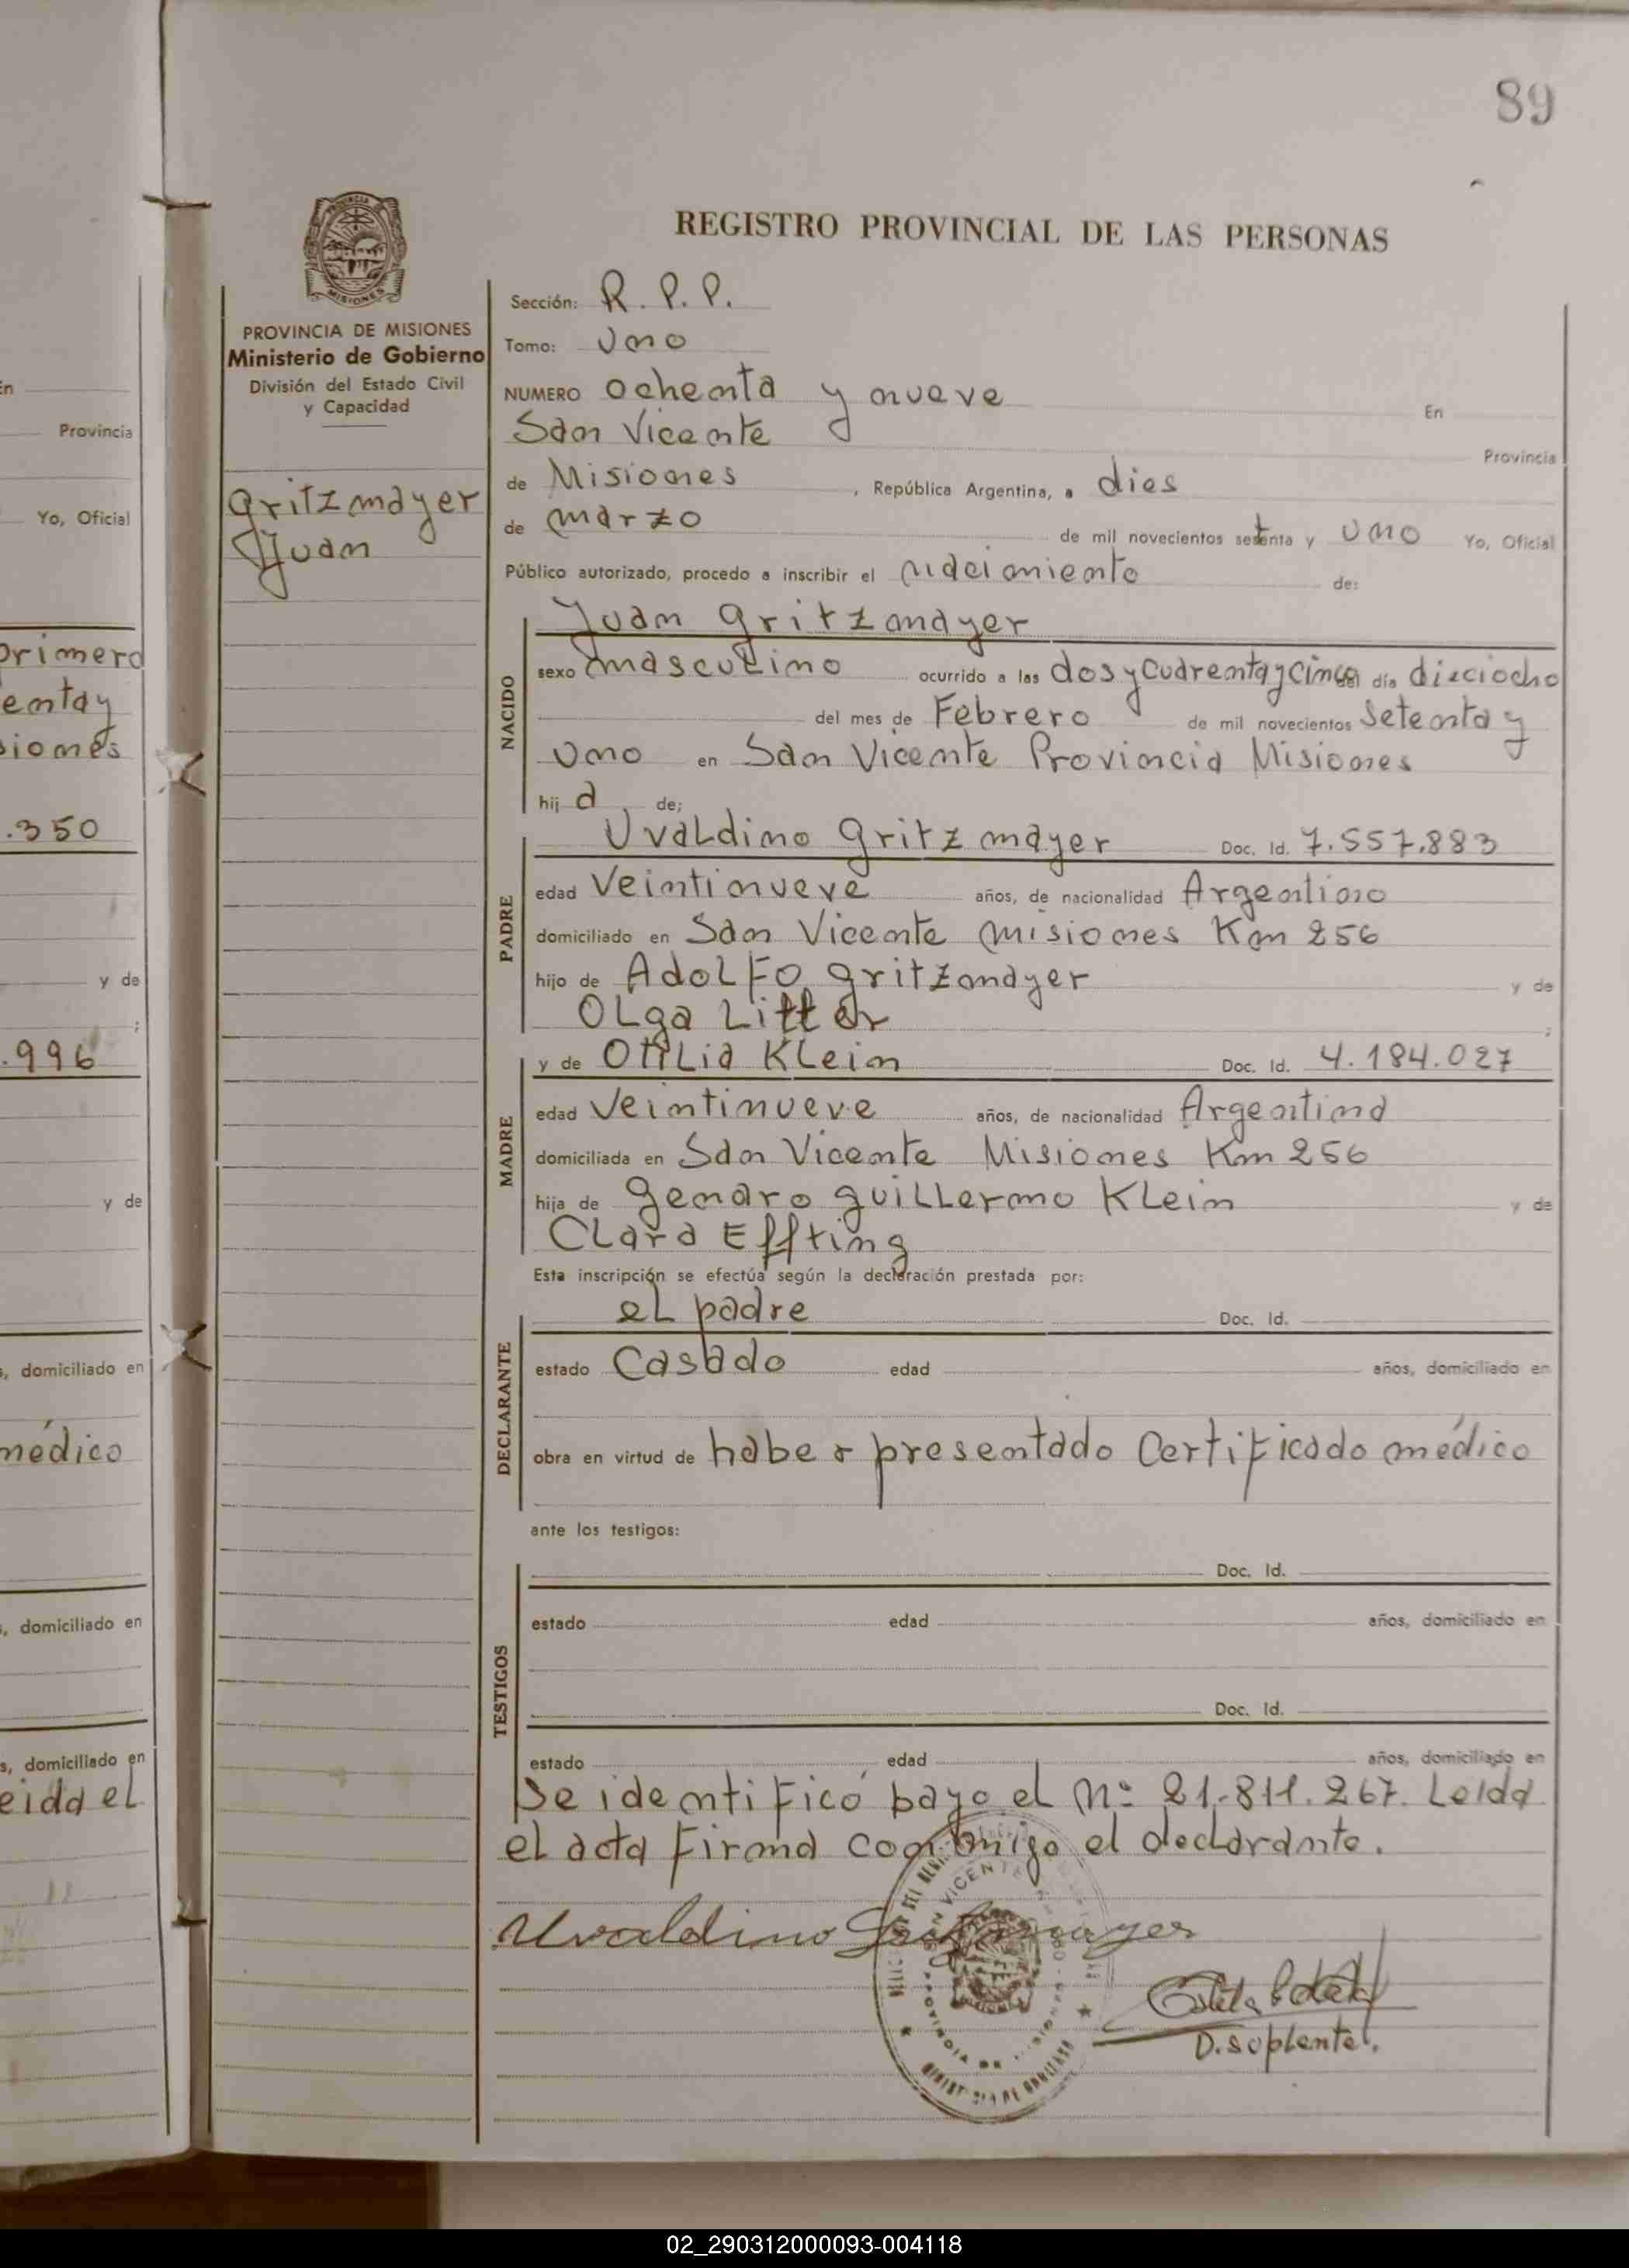 89
REGISTRO PROVINCIAL DE LAS PERSONAS
MISIONES
PROVINCIA DE MISIONES
Ministerio de Gobierno
División del Estado Civil
y Capacidad
Gritzmayer
Juan
Sección: R. P. P.
Tomo: Uno
NUMERO Ochenta y nueve En
San Vicente Provincia
de Misiones, República Argentina, a dies
de marzo de mil novecientos setenta y uno Yo, Oficial
Público autorizado, procedo a inscribir el nacimiento de:
NACIDO
Juan Gritzmayer
sexo masculino ocurrido a las dos y cuarenta y cinco del día dieciocho
del mes de Febrero de mil novecientos setenta y
uno en San Vicente Provincia Misiones
hij a de;
PADRE
Uvaldino Gritzmayer Doc. Id. 7.557.883
edad Veintinueve años, de nacionalidad Argentino
domiciliado en San Vicente Misiones Km 256
hijo de Adolfo Gritzmayer y de
Olga Litter ;
MADRE
y de Otilia Klein Doc. Id. 4.184.027
edad Veintinueve años, de nacionalidad Argentina
domiciliada en San Vicente Misiones Km 256
hija de Genaro Guillermo Klein y de
Clara Effting
Esta inscripción se efectúa según la declaración prestada por:
DECLARANTE
el padre Doc. Id.
estado Casado edad años, domiciliado en
obra en virtud de haber presentado Certificado médico
ante los testigos:
TESTIGOS
Doc. Id.
estado edad años, domiciliado en
Doc. Id.
estado edad años, domiciliado en
Se identificó bayo el Nº 21.811.267. Leida
el acta firma conmigo el declarante.
Uvaldino Gritzmayer
D. suplente.
En
Provincia
Yo, Oficial
primero
enta y
siones
.350
y de
;
.996
y de
s, domiciliado en
médico
s, domiciliado en
s, domiciliado en
eida el
02_290312000093-004118